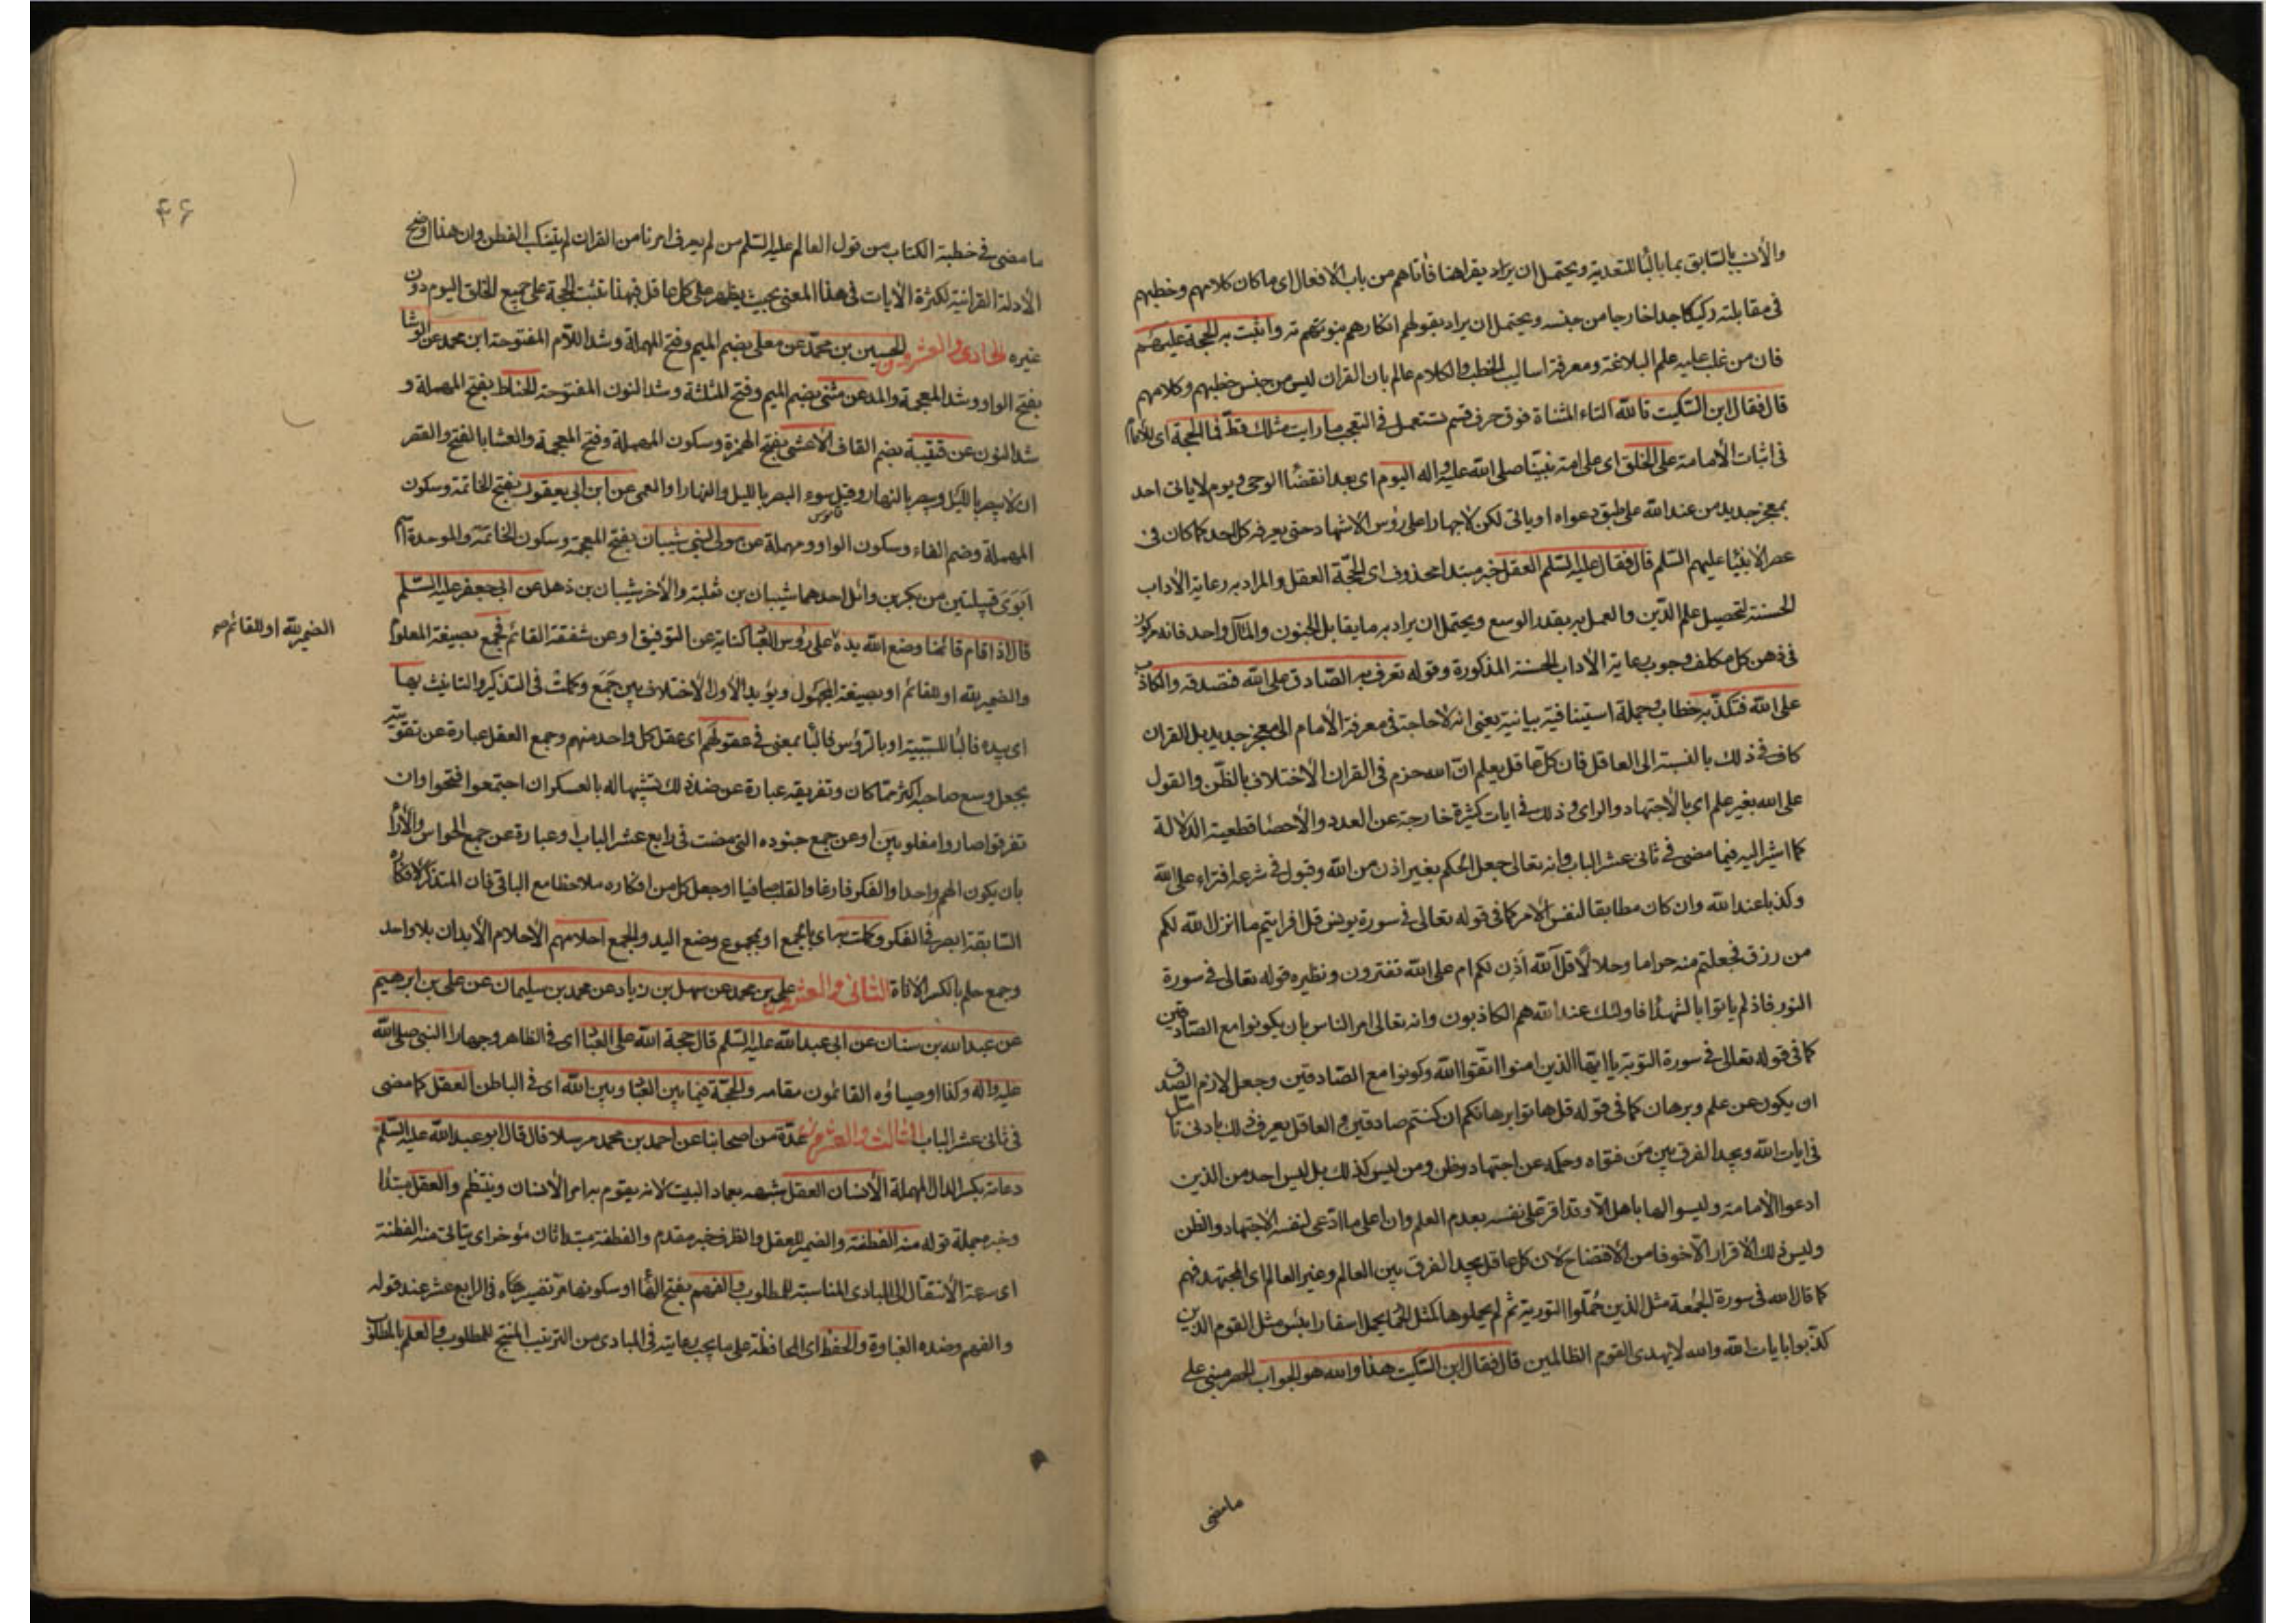 والأنسب بالسابق بما بالبا للتعدية ويحتمل ان يراد يقراهنا فاتاهم من باب الافعال اى ما كان كلامهم وخطبهم
فى مقابلته ركيكا جدا خارجا من جنسه ويحتمل ان يراد بقولهم انكارهم منوتهم ته واثبت به الحجة عليهم
فان من غلب عليه علم البلاغة ومعرفة اساليب الخطب والكلام عالم بان القران ليس من جنس خطبهم وكلامهم
قال فقال ابن السكيت تالله التاء المثناة فوق حرف قسم تستعمل فى التعجب ما رايت مثلك قط فما الحجة اى
فى اثبات الأمامة على الخلق اى على امة نبينا صلى الله عليه واله اليوم اى بعد انقضا الوحى ويوم لا ياتى احد
بمعجز جديد من عند الله على طبق دعواه او ياتى لكن لا جهارا على رؤس الاشهاد حتى يعرفه كل احد كما كان فى
عصر الانبيا عليهم السلم قال فقال عليه السلم العقل خبر مبتدا محذوف اى الحجة العقل والمراد به رعاية الأداب
الحسنة لتحصيل علم الدين والعمل به بقدر الوسع ويحتمل ان يراد به ما يقابل الجنون والمآل واحد فانه مركوز
فى ذهن كل مكلف وجوب رعاية الأداب الحسنة المذكورة وقوله تعرف به الصادق على الله فتصدقه والكاذب
على الله فتكذبه خطاب وجملة استينافية بيانية يعنى انه لا حاجة فى معرفة الأمام الى معجز جديد بل القران
كاف فى ذلك بالنسبة الى العاقل فان كل عاقل يعلم ان الله حرم فى القران الأختلاف بالظن والقول
على الله بغير علم اى بالأجتهاد والراى وذلك فى ايات كثيرة خارجة عن العدد والأحصا قطعية الدلالة
كما اشير اليه فيما مضى فى ثانى عشر الباب وانه تعالى جعل الحكم بغير اذن من الله وقبول فى شرعه افتراء على الله
وكذبا عند الله وان كان مطابقا لنفس الامر كما فى قوله تعالى فى سورة يونس قل افرايتم ما انزل الله لكم
من رزق فجعلتم منه حراما وحلالا قل آلله أذن لكم ام على الله تفترون ونظيره قوله تعالى فى سورة
النور فاذ لم ياتوا بالشهدا فاولئك عند الله هم الكاذبون وانه تعالى امر الناس بان يكونوا مع الصادقين
كما فى قوله تعالى فى سورة التوبة يا ايها الذين امنوا اتقوا الله وكونوا مع الصادقين وجعل لازم الصدق
ان يكون عن علم وبرهان كما فى قوله قل هاتوا برهانكم ان كنتم صادقين والعاقل يعرف ذلك بادنى تامل
فى ايات الله ويجد الفرق بين من فتواه وحكمه عن اجتهاد وظن ومن ليس كذلك بل ليس احد من الذين
ادعوا الأمامة وليسوا لها باهل الا وقد اقر على نفسه بعدم العلم وان اعلى ما ادعى لنفسه الاجتهاد والظن
وليس ذلك الاقرار الا خوفا من الأفتضاح لان كل عاقل يجد الفرق بين العالم وغير العالم اى المجتهد فهم
كما قال الله فى سورة الجمعة مثل الذين حملوا التورية ثم لم يحملوها كمثل الحمار يحمل اسفارا بئس مثل القوم الذين
كذبوا بايات الله والله لا يهدى القوم الظالمين قال فقال ابن السكيت هذا والله هو الجواب الحصر مبنى على
ما مضى
۴۶
ما مضى فى خطبة الكتاب من قول العالم عليه السلم من لم يعرف امرنا من القران لم يتنكب الفطن وان هذا اوضح
الأدلة القرانية لكثرة الأيات فى هذا المعنى بحيث يظهر على كل عاقل فبهذا تثبت الحجة على جميع الخلق اليوم دون
غيره الحادى والعشرون الحسين بن محمد عن معلى بضم الميم وفتح المهملة وشد اللام المفتوحة ابن محمد عن الوشا
بفتح الواو وشد المعجمة والمد عن مثنى بضم الميم وفتح المثلثة وشد النون المفتوحة الحناط بفتح المهملة و
شد النون عن قتيبة بضم القاف الأعشى بفتح الهمزة وسكون المهملة وفتح المعجمة والعشا بالفتح والقصر
ان لا يبصر بالليل ويبصر بالنهار وقيل سوء البصر بالليل والنهار او العمى عن ابن ابى يعفور بفتح الخاتمة وسكون
قاموس
المهملة وضم الفاء وسكون الواو ومهملة عن مولى لبنى شيبان بفتح المعجمة وسكون الخاتمة والموحدة اسم
ابوى قبيلتين من بكر بن وائل احدهما شيبان بن ثعلبة والأخر شيبان بن ذهل عن ابى جعفر عليه السلم
قال اذا قام قائمنا وضع الله يده على رؤس العباد كناية عن التوفيق او عن شفقة القائم فجمع بصيغة المعلوم
الضمير لله او للقائم صح
والضمير لله او للقائم او بصيغة المجهول ويؤيد الأول الأختلاف بين جمع وكملت فى التذكير والتانيث بها
اى بيده فالبا للسببية او بالرؤس فالبأ بمعنى فى عقولهم اى عقل كل واحد منهم وجمع العقل عبارة عن تقويته
بجعل وسع صاحبه اكثر مما كان وتفريقه عبارة عن ضد ذلك تشبيها له بالعسكر ان اجتمعوا فتحوا وان
تفرقوا صاروا مغلوبين او عن جمع جنوده التى مضت فى رابع عشر الباب او عبارة عن جمع الحواس والأرا
بان يكون الهم واحدا والفكر فارغا والقلب صافيا او جعل كل من افكاره ملاحظا مع الباقى فان المتذكر لافكاره
السابقة ابصر فى الفكر وكملت بها اى بالجمع او بمجموع وضع اليد والجمع احلامهم الأحلام الأبدان بلا واحد
وجمع حلم بالكسر الاناة الثانى والعشرون على بن محمد عن سهل بن زياد عن محمد بن سليمان عن على بن ابرهيم
عن عبد الله بن سنان عن ابى عبد الله عليه السلم قال حجة الله على العباد اى فى الظاهر وجهارا النبى صلى الله
عليه واله وكذا اوصياؤه القائمون مقامه والحجة فيما بين العباد وبين الله اى فى الباطن العقل كما مضى
فى ثانى عشر الباب الثالث والعشرون عدة من اصحابنا عن احمد بن محمد مرسلا قال قال ابو عبد الله عليه السلم
دعامة بكسر الدال المهملة الأنسان العقل شبهه بعماد البيت لانه يقوم به امر الأنسان وينتظم والعقل مبتدا
وخبره جملة قوله منه الفطنة والضمير للعقل والظرف خبر مقدم والفطنة مبتدا ثان مؤخر اى يتاتى منه الفطنة
اى سرعة الأنتقال الى المبادى المناسبة للمطلوب والفهم بفتح الها او سكونها مر تفسيرهما فى الرابع عشر عند قوله
والفهم وضده الغباوة والحفظ اى المحافظة على ما يجب رعايته فى المبادى من الترتيب المنتج للمطلوب والعلم بالمطلوب